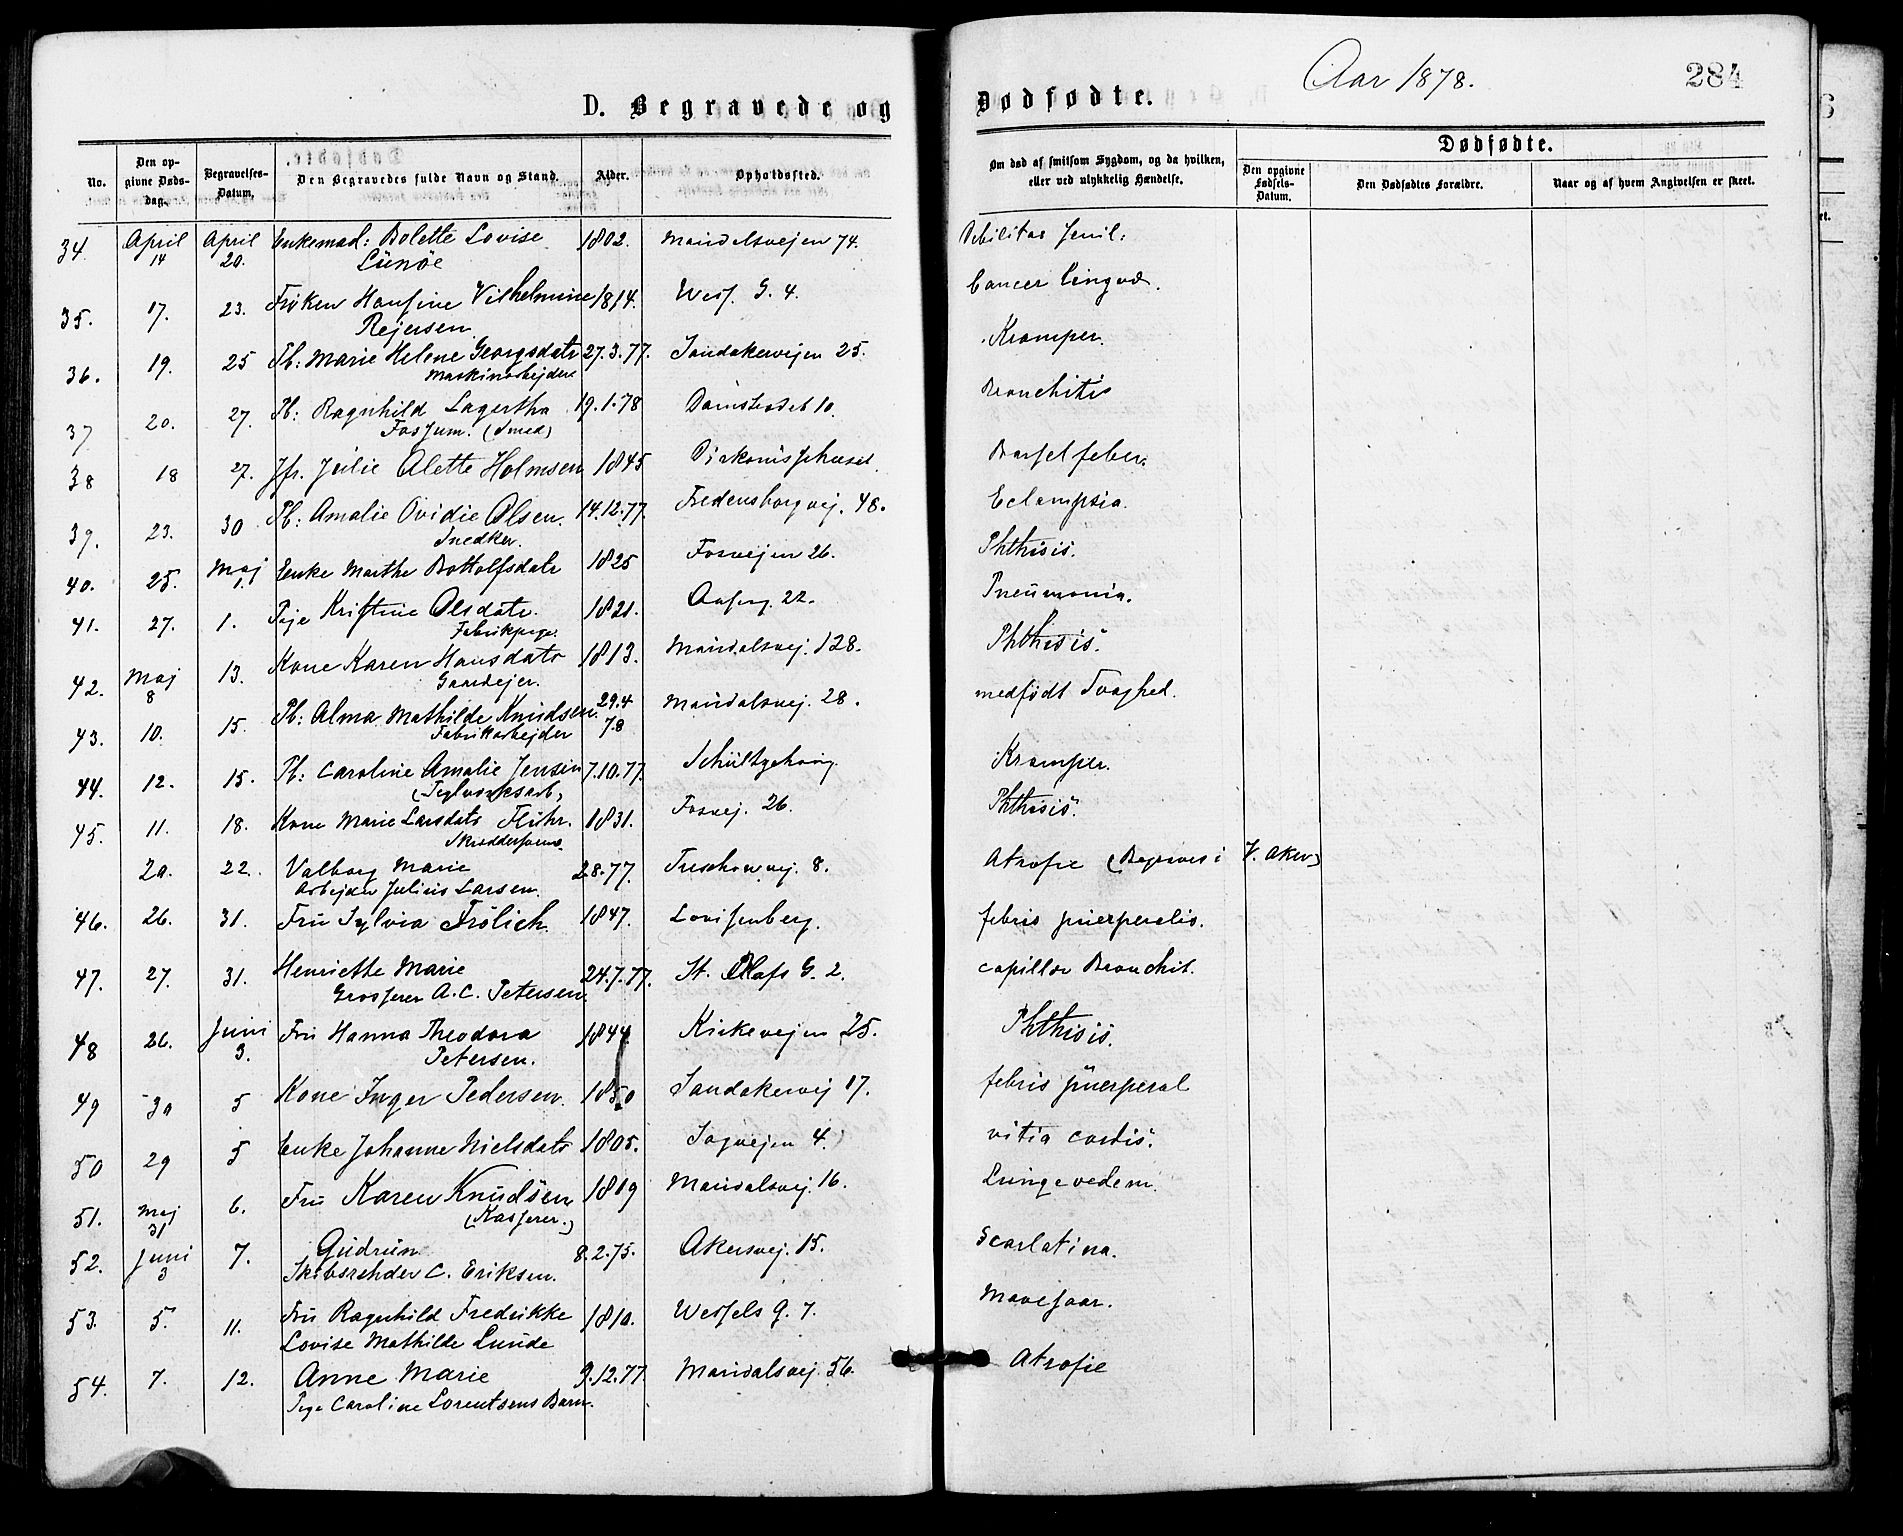 Aar 1878.
284
D. Begravede og Dødfødte.
Dødfødte.
No. Den opgivne Døds-dag. Begravelses-Datum. Den Begravedes fulde Navn og Stand. Alder. Opholdssted. Om død af smitsom Sygdom, og da hvilken, eller ved ulykkelig Hændelse. Den opgivne Fødsels-Datum. Den Dødfødtes Forældre. Naar og af hvem Angivelsen er skeet.
34. April 14 April 20. Enkemad: Bolette Lovise 1802. Maridalsvejen 74. Debilitas senil:
Lünöe
35. 17. 23. Frøken Hansine Vilhelmine 1814. Wess. G. 4. Cancer lingvæ.
Rejersen
36. 19. 25 Pb: Marie Helene Georgsdatr 27.3.77. Sandakervejen 25. Kramper.
Maskinarbejder
37 20. 27. Pb: Ragnhild Lagertha 19.1.78 Damstredet 10. Bronchitis
Fossum. (Smed)
38 18 27. Jfr. Julie Alette Holmsen 1845 Diakonissehuset. Barselfeber.
39. 23. 30 Pb: Amalie Ovidie Olsen. 14.12.77. Fredensborgvej. 48. Eclampsia.
Snedker.
40. 25. Maj 1. Enke Marthe Bottolfsdatr 1825 Fosvejen 26. Phthisis.
41. 27. 1. Pige Kristine Olsdatr. 1821. Aaseng. 22. Pneumonia.
Fabrikpige.
42. Maj 8 13. Kone Karen Hansdatr 1813. Maridalsvej. 128. Phthisis.
Gaardejer.
43. 10. 15. Pb: Alma Mathilde Knudsen. 29.4 78 Maridalsvej. 28. medfødt Svaghed.
Fabrikarbejder
44. 12. 15. Pb: Caroline Amalie Jensen 7.10.77. Schultzehaug. Kramper.
(Teglværksarb)
45. 11. 18. Kone Marie Larsdatr Flühr. 1831. Fosvej. 26. Phthisis.
Skrædersvend
20. 22. Valborg Marie 2.8.77. Treschowvej. 8. Atrofie (Begraves i V. Aker)
Arbejder Julius Larsen.
46. 26. 31. Fru Sylvia Frölich 1847. Lovisenberg. febris puerperalis.
47. 27. 31. Henriette Marie 24.7.77. St. Olafs G. 2. capillær Bronchit.
Grosserer A. C. Petersen.
48 26. Juni 3. Fru Hanna Theodora 1844 Kirkevejen 25. Phthisis.
Petersen.
49 30 5 Kone Inger Pedersen. 1850 Sandakervej 17. febris puerperal
50 29 5 Enke Johanne Nielsdatr 1805. Sagvejen 4. vitia cordis.
51. Maj 31 6. Fru Karen Knudsen 1819 Maridalsvej. 16. Lungeoedem.
(Kasserer.)
52. Juni 3 7. Gudrun 8.2.75. Akersvej. 15. Scarlatina.
Skibsrehder C. Eriksen.
53. 5. 11. Fru Ragnhild Fredrikke 1810. Wessels G. 7. Mavesaar.
Lovise Mathilde Lunde
54. 7. 12. Anne Marie 9.12.77 Maridalsvej. 56. Atrofie
Pige Caroline Lorentsens Barn.